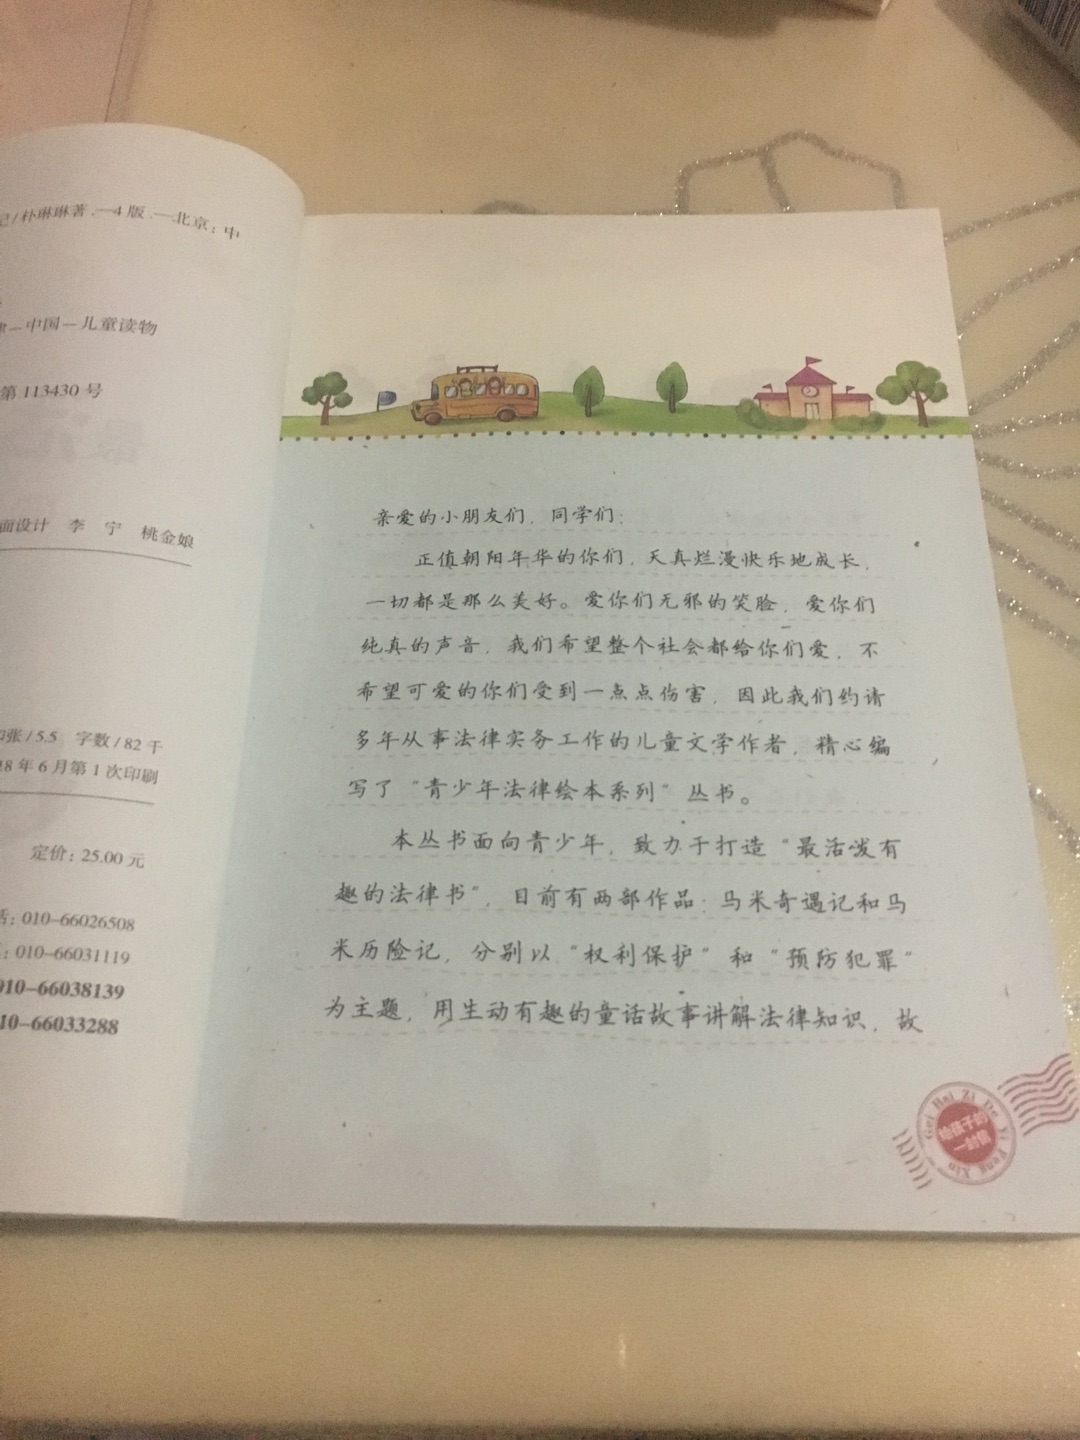 记/朴琳琳著.—4版.—北京：中
律－中国－儿童读物
第113430号
面设计 李 宁 桃金娘
印张/5.5 字数/82千
18年6月第1次印刷
定价：25.00元
话：010-66026508
：010-66031119
010-66038139
10-66033288
亲爱的小朋友们，同学们：
正值朝阳年华的你们，天真烂漫快乐地成长，
一切都是那么美好。爱你们无邪的笑脸，爱你们
纯真的声音，我们希望整个社会都给你们爱，不
希望可爱的你们受到一点点伤害，因此我们约请
多年从事法律实务工作的儿童文学作者，精心编
写了“青少年法律绘本系列”丛书。
本丛书面向青少年，致力于打造“最活泼有
趣的法律书”，目前有两部作品：马米奇遇记和马
米历险记，分别以“权利保护”和“预防犯罪”
为主题，用生动有趣的童话故事讲解法律知识，故
Gei Hai Zi De Yi Feng Xin
给孩子的
一封信